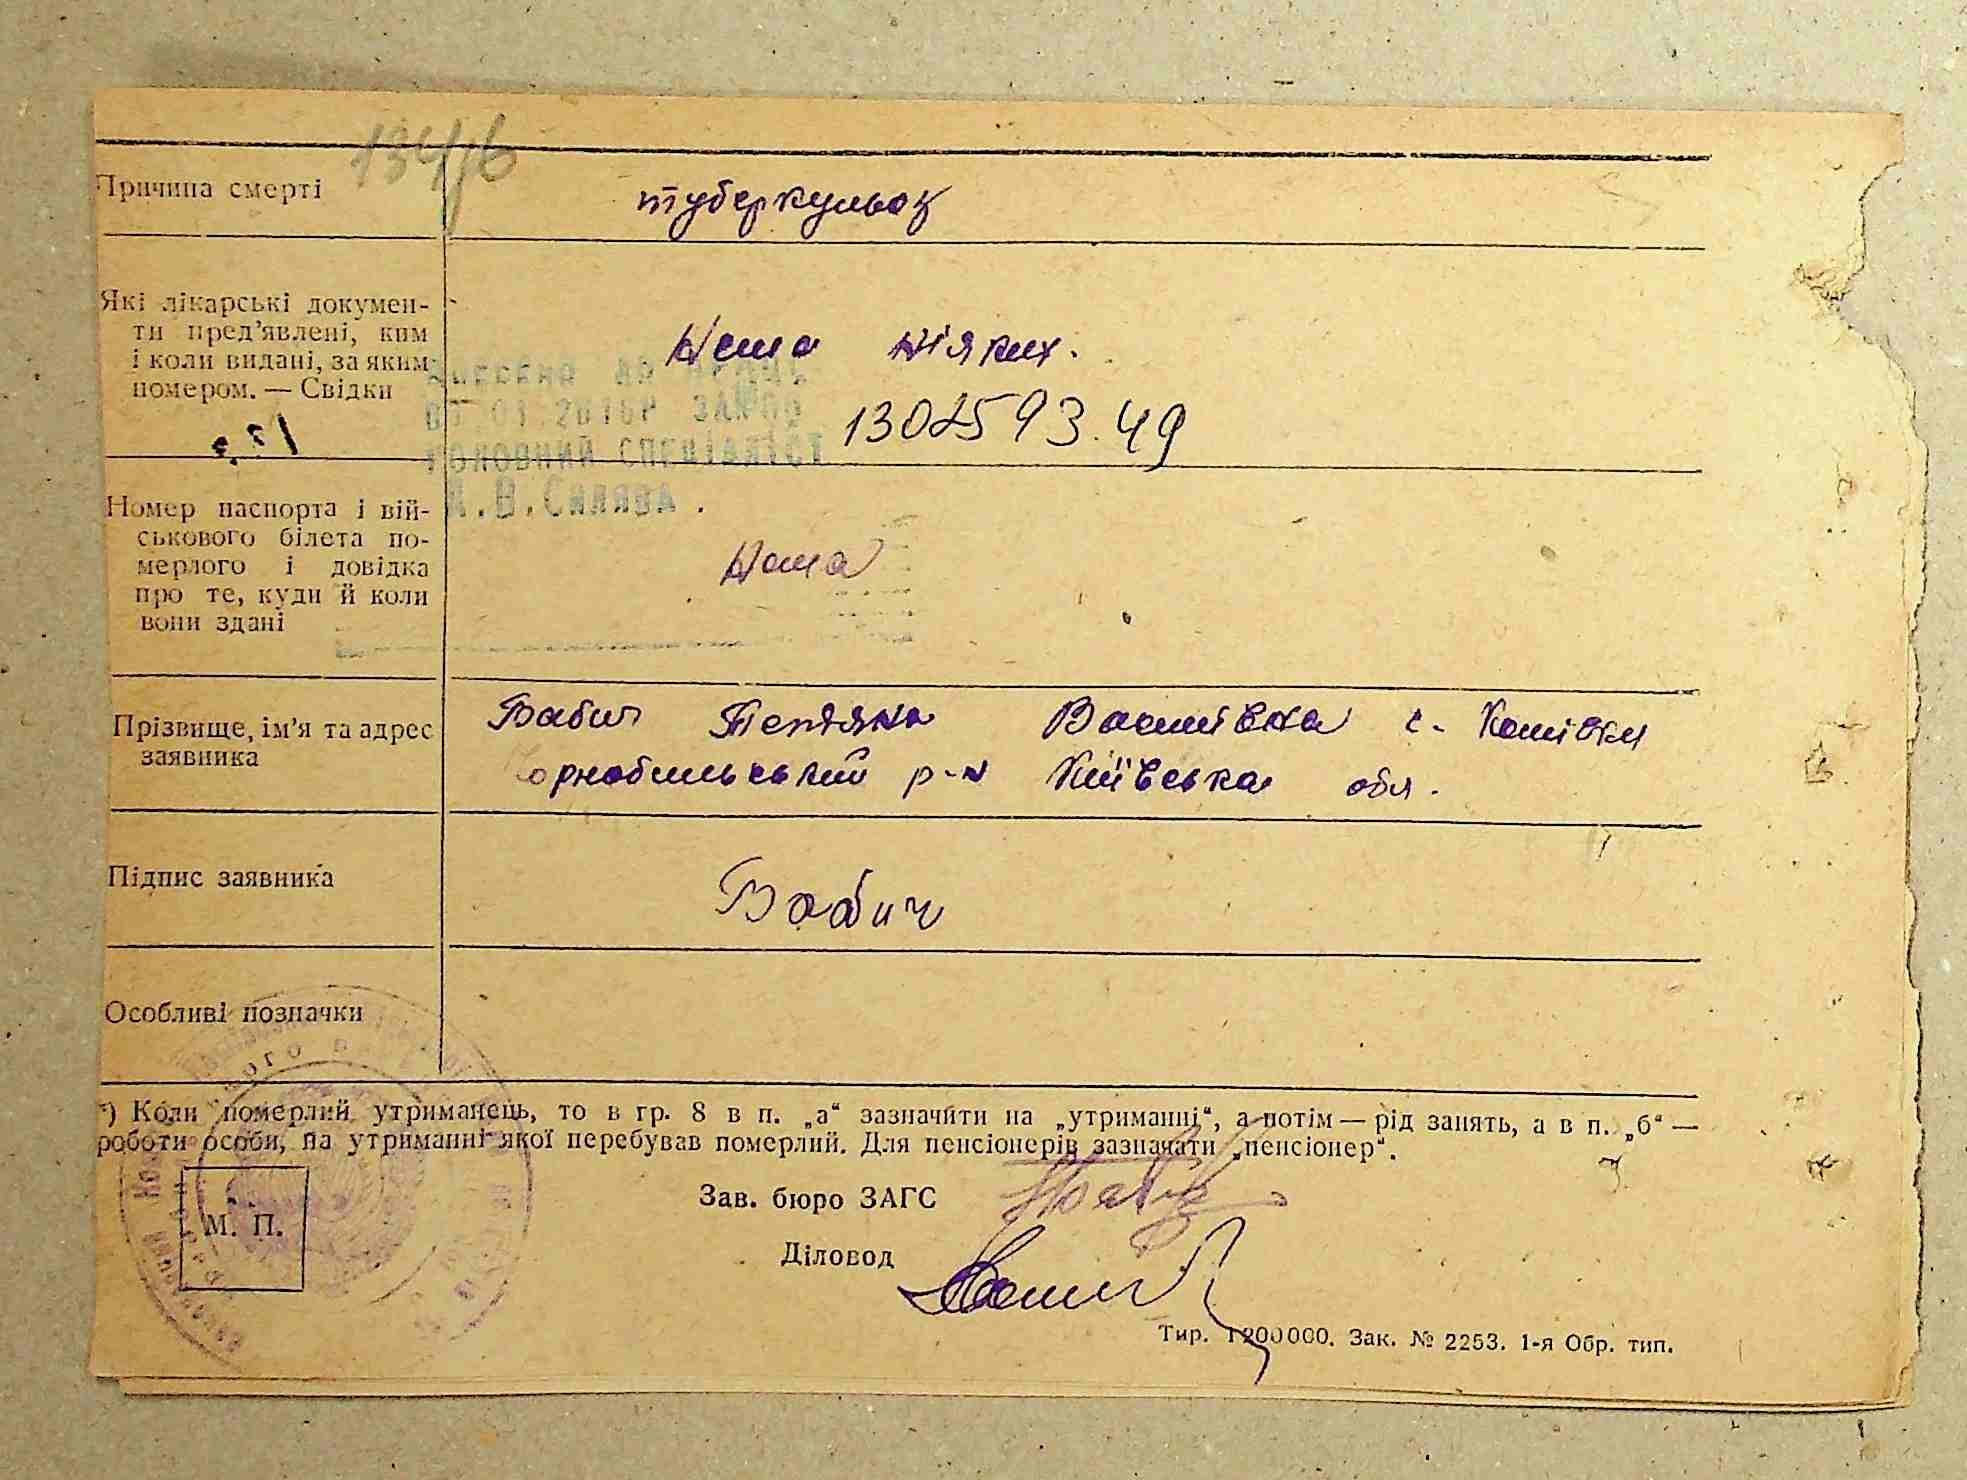 134/б
Причина смерті
туберкульоз
Які лікарські докумен-
ти пред'явлені, ким
і коли видані, за яким
номером. — Свідки
Нема ніяких.
130 593.49
ГОЛОВНИЙ СПЕЦІАЛІСТ
Номер паспорта і вій-
ськового білета по-
мерлого і довідка
про те, куди й коли
вони здані
Нема
Прізвище, ім'я та адрес
заявника
Бабич Тетяна Василівна с.
Чорнобильський р-н Київська обл.
Підпис заявника
Бабич
Особливі позначки
*) Коли померлий утриманець, то в гр. 8 в п. „а“ зазначити на „утриманні“, а потім — рід занять, а в п. „б“ —
роботи особи, на утриманні якої перебував померлий. Для пенсіонерів зазначати „пенсіонер“.
Зав. бюро ЗАГС
М. П.
Діловод
Тир. 1200000. Зак. № 2253. 1-я Обр. тип.